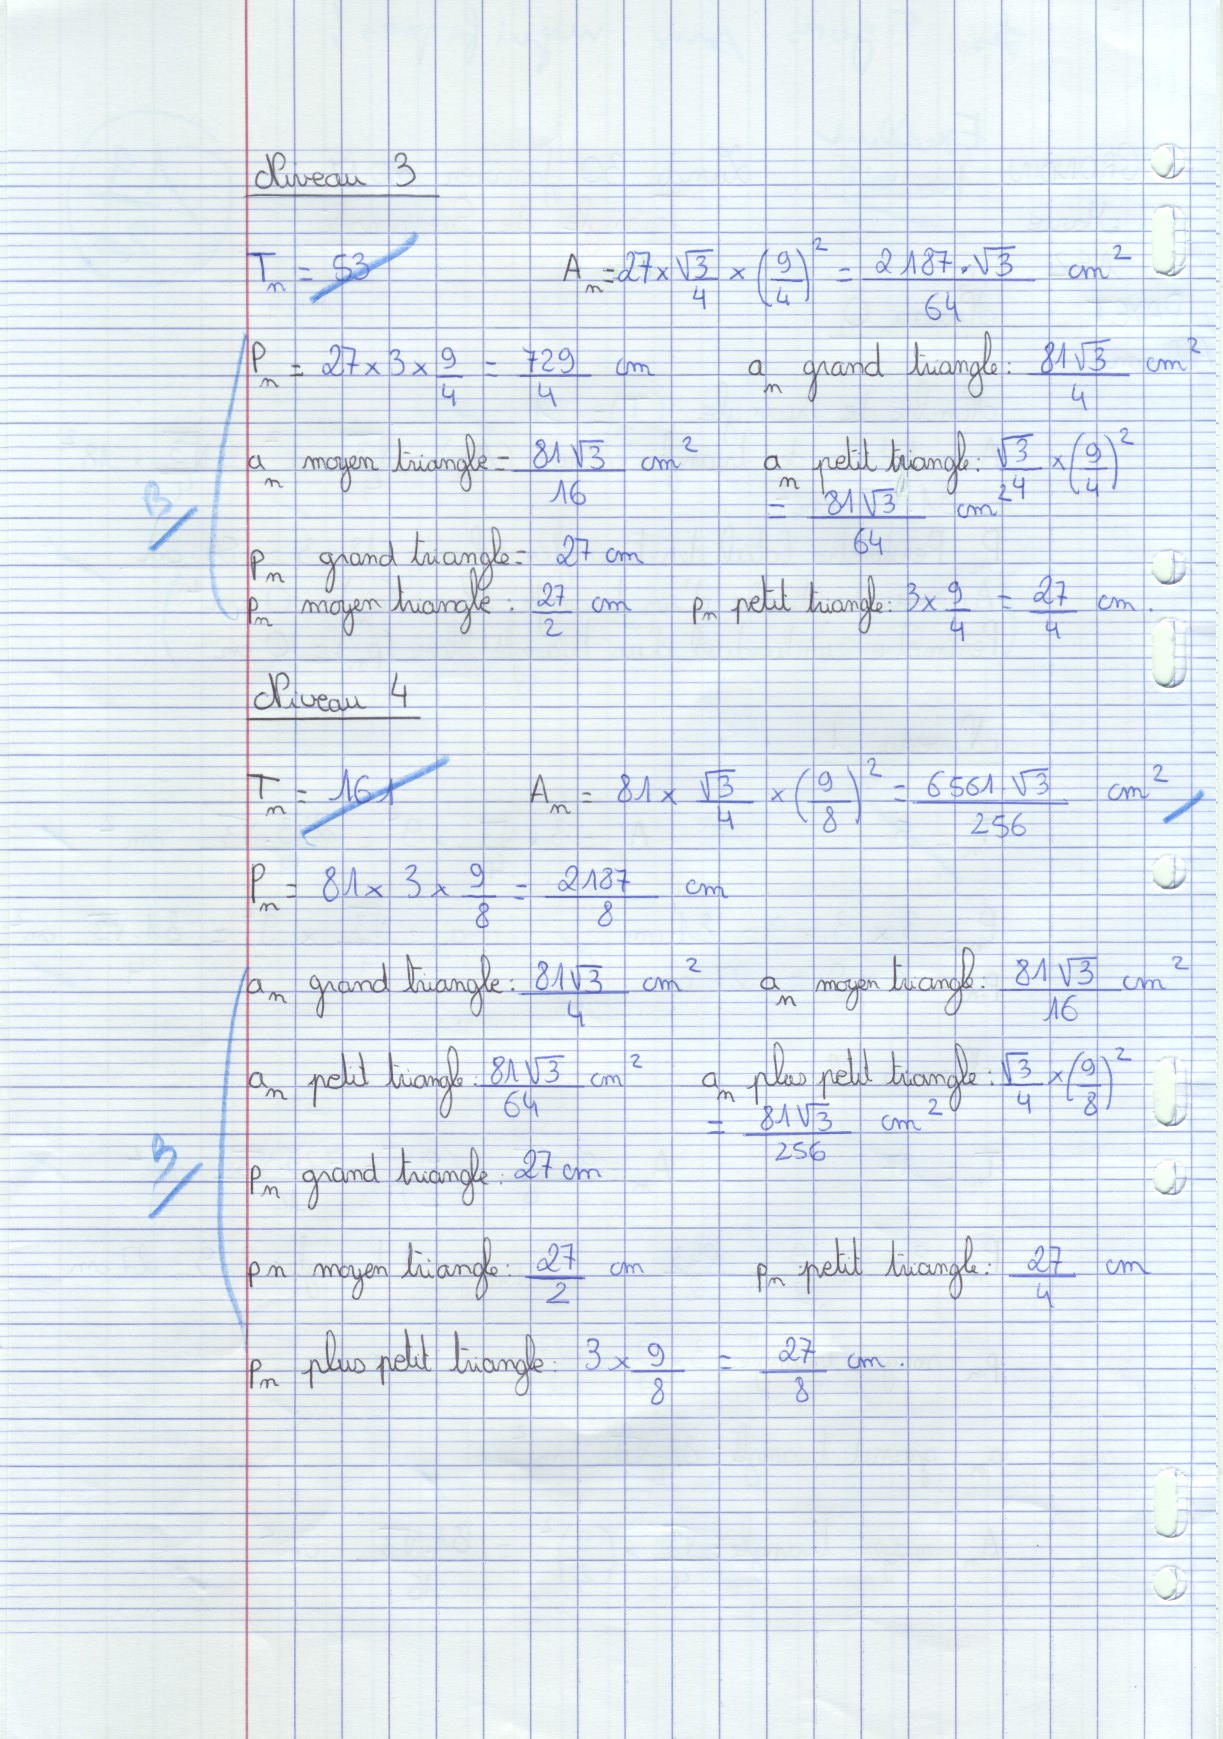 Niveau 3
Tn = 53 An = 27 × √3/4 × (9/4)² = 2187·√3/64 cm²
Pn = 27 × 3 × 9/4 = 729/4 cm an grand triangle : 81√3/4 cm²
an moyen triangle = 81√3/16 cm² an petit triangle : √3/4 × (9/4)²
= 81√3/64 cm²
B
pn grand triangle = 27 cm
pn moyen triangle : 27/2 cm pn petit triangle : 3 × 9/4 = 27/4 cm.
Niveau 4
Tn = 161 An = 81 × √3/4 × (9/8)² = 6561·√3/256 cm²
Pn = 81 × 3 × 9/8 = 2187/8 cm
an grand triangle : 81√3/4 cm² an moyen triangle : 81√3/16 cm²
an petit triangle : 81√3/64 cm² an plus petit triangle : √3/4 × (9/8)²
= 81√3/256 cm²
B
pn grand triangle : 27 cm
pn moyen triangle : 27/2 cm pn petit triangle : 27/4 cm
pn plus petit triangle : 3 × 9/8 = 27/8 cm.